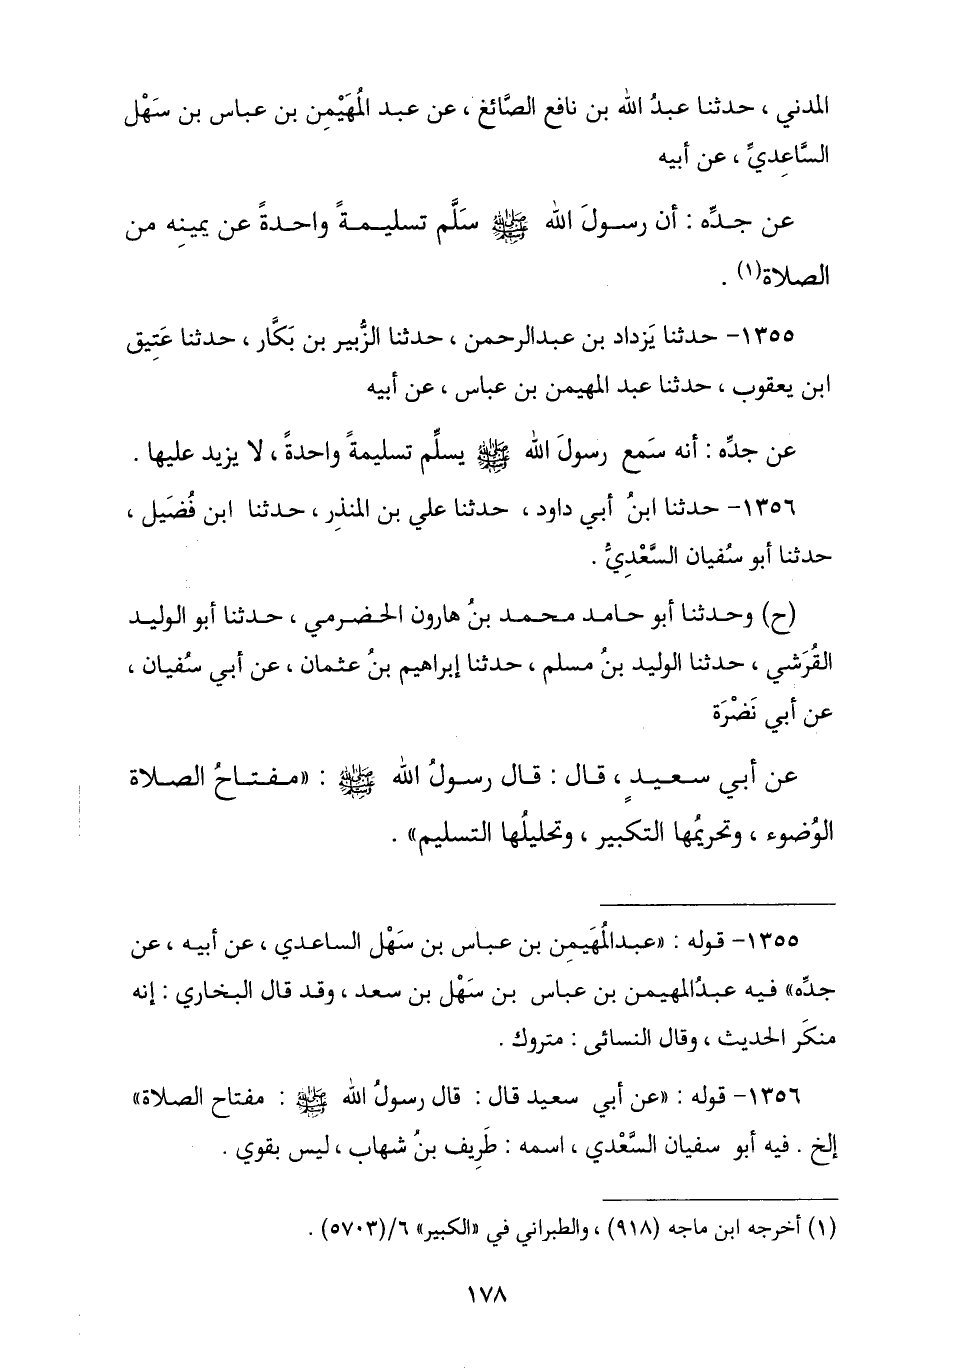 المدني ، حدثنا عبدُ الله بن نافع الصَّائغ ، عن عبد المُهَيْمِن بن عباس بن سَهْل
السَّاعِديِّ ، عن أبيه
عن جدِّه : أن رسولَ الله ﷺ سَلَّم تسليمةً واحدةً عن يمينِه من
الصلاة(١) .
١٣٥٥- حدثنا يَزداد بن عبدالرحمن ، حدثنا الزُّبير بن بَكَّار ، حدثنا عَتِيق
ابن يعقوب ، حدثنا عبد المهيمن بن عباس ، عن أبيه
عن جدِّه : أنه سَمع رسولَ الله ﷺ يسلِّم تسليمةً واحدةً ، لا يزيد عليها .
١٣٥٦- حدثنا ابنُ أبي داود ، حدثنا علي بن المنذِر ، حدثنا ابن فُضَيل ،
حدثنا أبو سُفيان السَّعْدِيُّ .
(ح) وحدثنا أبو حامد محمد بنُ هارون الحضرمي ، حدثنا أبو الوليد
القُرَشي ، حدثنا الوليد بنُ مسلم ، حدثنا إبراهيم بنُ عثمان ، عن أبي سُفيان ،
عن أبي نَضْرَة
عن أبي سعيدٍ ، قال : قال رسولُ الله ﷺ : «مفتاحُ الصلاة
الوُضوء ، وتحريمُها التكبير ، وتحليلُها التسليم» .
١٣٥٥- قوله : «عبدالمُهَيمِن بن عباس بن سَهْل الساعدي ، عن أبيه ، عن
جدِّه» فيه عبدُالمهيمن بن عباس بن سَهْل بن سعد ، وقد قال البخاري : إنه
منكَر الحديث ، وقال النسائى : متروك .
١٣٥٦- قوله : «عن أبي سعيد قال : قال رسولُ الله ﷺ : مفتاح الصلاة»
إلخ . فيه أبو سفيان السَّعْدي ، اسمه : طَرِيف بنُ شهاب ، ليس بقوي .
(١) أخرجه ابن ماجه (٩١٨) ، والطبراني في «الكبير» ٦/(٥٧٠٣) .
١٧٨